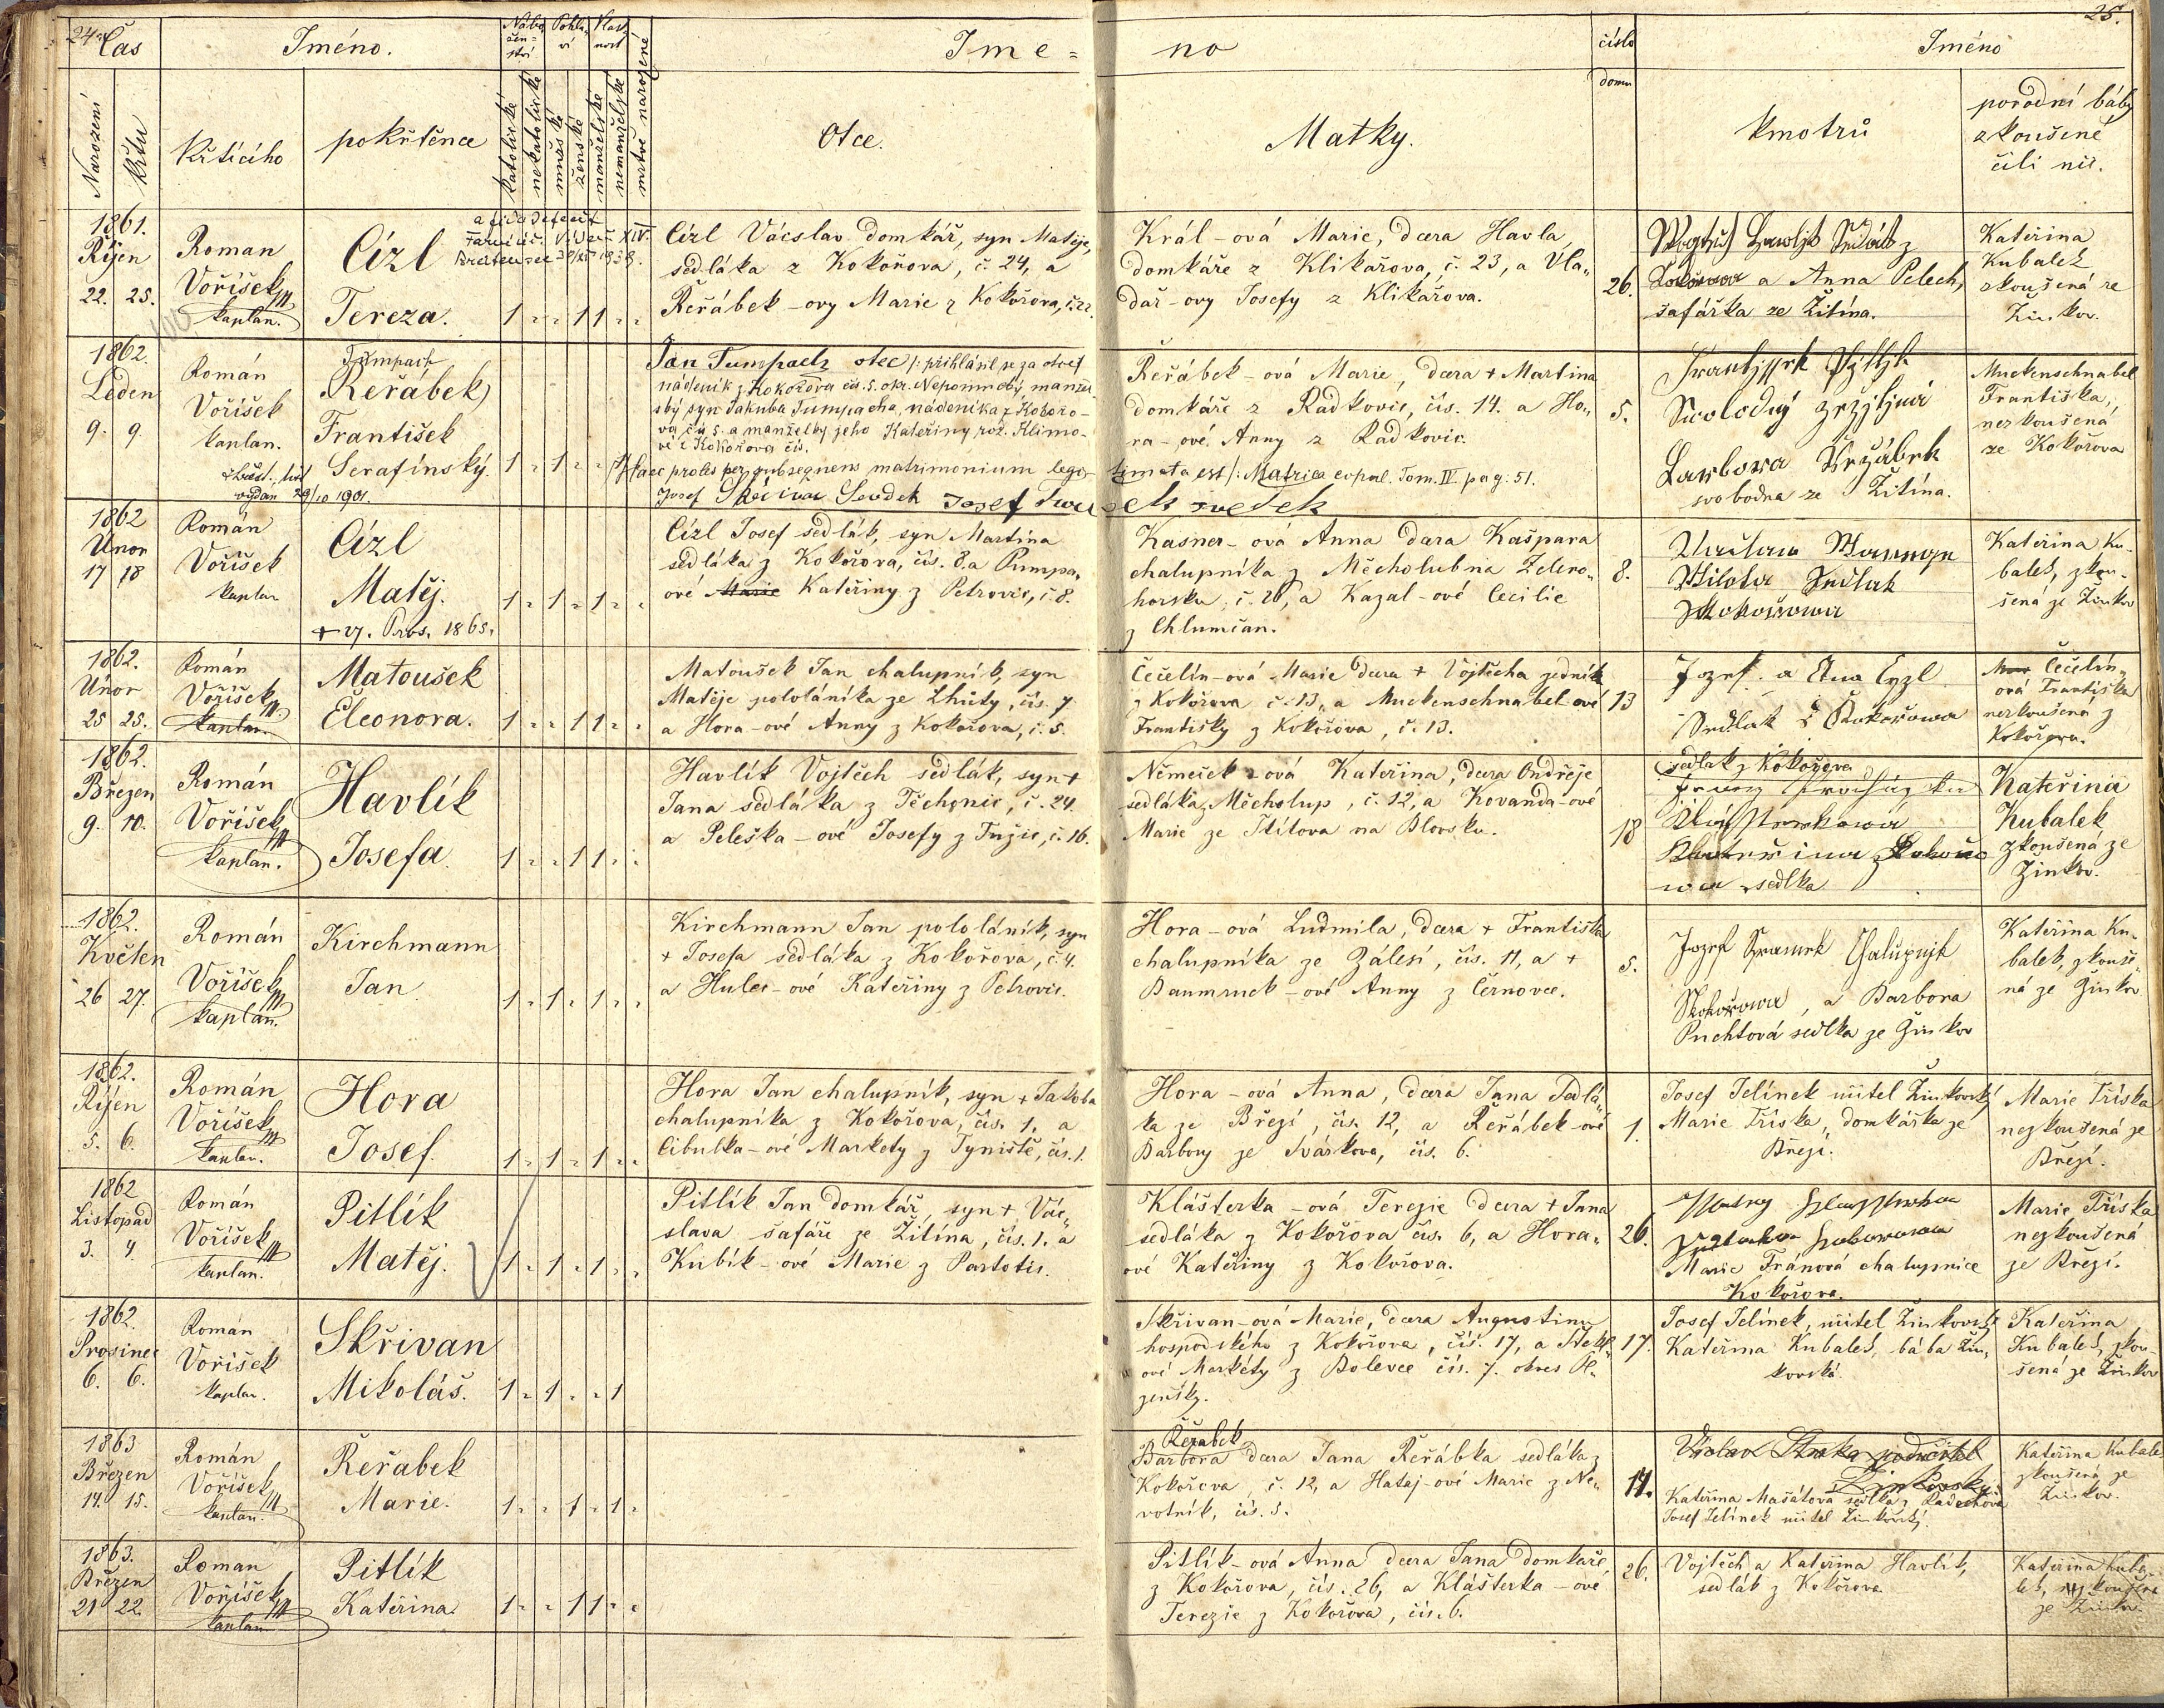 24.
25.
Čas
Jméno.
Nábo-
žen-
ství
Pohla-
ví
Jme=
no
číslo
domu
Jméno
Narození
Křtu
Křtícího
pokřtěnce
katolické
nekatolické
mužské
ženské
manželské
nemanželské
mrtvě narozené
Otce.
Matky.
kmotrů
porodní báby
zkoušené
čili nic.
1861.
Říjen
22. 25.
Roman
Voříšek
kaplan.
Cízl
Tereza.
1 " " 1 1 " "
Cízl Vácslav domkář, syn Matěje,
sedláka z Kokořova, č. 24, a
Řeřábek-ovy Marie z Kokořova, č. 22.
Král-ová Marie, dcera Havla,
domkáře z Klikařova, č. 23, a Vla-
dař-ovy Josefy z Klikařova.
26.
a Anna Pelech,
šafářka ze Žitína.
Kateřina
Kubaleš
zkoušená ze
Žinkov.
1862.
Leden
9. 9.
Román
Voříšek
kaplan.
křest. list
vydán 29/10 1901.
Tumpach
(Řeřábek)
František
Serafínský.
1 " 1 " "
Jan Tumpach otec /: přihlásil se za otce
nádeník z Kokořova čís. 5. okr. Nepomucký, manžel-
ský syn Jakuba Tumpacha, nádeníka z Kokořo-
va čís 5. a manželky jeho Kateřiny rož. Klimo-
vé z Kokořova čís.
Haec proles per subsequens matrimonium legi-
timata est /: Matrica copul. Tom. IV. pag: 51.
Josef Skřivan Svědek
svedek
Řeřábek-ová Marie, dcera + Martina
domkáře z Radkovic, čís. 14. a Ho-
ra-ové Anny z Radkovic.
5.
Barbora Řeřábek
svobodna ze Žitína.
Muckenschnabel
Františka,
nezkoušená
ze Kokořova
1862
Únor
17 18
Román
Voříšek
kaplan
Cízl
Matěj.
+ 27. Pros. 1865.
1 " 1 " 1 " "
Cízl Josef sedlák, syn Martina
sedláka z Kokořova, čís. 8. a Pumpr-
ové Marie Kateřiny z Petrovic, č 8.
Kasner-ová Anna dcera Kašpara
chalupníka z Měcholub na Zeleno-
horsku, č. 20, a Kazal-ové Cecilie
z Chlumčan.
8.
Kateřina Ku-
baleš, zkou-
šená ze Žinkov
1862.
Únor
25 25.
Román
Voříšek
kaplan.
Matoušek
Eleonora.
1 " " 1 1 " "
Matoušek Jan chalupník, syn
Matěje pololáníka ze Lhůty, čís. 7
a Hora-ové Anny z Kokořova, č. 5.
Čečelín-ová Marie dcera + Vojtěcha zedníka
z Kokořova č. 13, a Muckenschnabel-ové
Františky z Kokořova, č. 13.
13
Jozef a Ana Cyzl
Sedlak z Kokořowa
Čečelín-
ová Františka
nezkoušená z
Kokořova.
1862.
Březen
9. 10.
Román
Voříšek
kaplan.
Havlík
Josefa.
1 " " 1 1 " "
Havlík Vojtěch sedlák, syn +
Jana sedláka z Těchonic, č. 24.
a Peleška-ové Josefy z Tužic, č. 16.
Němeček-ová Kateřina, dcera Ondřeje
sedláka z Měcholup, č. 12, a Kovanda-ové
Marie ze Ždírova na Blovsku.
18
sedlak z Kokořova
sedlka
Kateřina
Kubalek
zkoušená ze
Žinkov.
1862.
Květen
26 27.
Román
Voříšek
kaplan.
Kirchmann
Jan
1 " 1 " 1 " "
Kirchmann Jan pololáník, syn
+ Josefa sedláka z Kokořova, č. 4.
a Hulec-ové Kateřiny z Petrovic.
Hora-ová Ludmila, dcera + Františka
chalupníka ze Zálesí, čís. 11, a +
Baumruck-ové Anny z Černovce.
5.
Kokořowa, a Barbora
Puchtová sedlka ze Žinkov
Kateřina Ku-
baleš, zkouše-
ná ze Žinkov
1862.
Říjen
5. 6.
Román
Voříšek
kaplan.
Hora
Josef.
1 " 1 " 1 " "
Hora Jan chalupník, syn + Jakoba
chalupníka z Kokořova, čís. 1. a
Cibulka-ové Markety z Týniště, čís. 1.
Hora-ová Anna, dcera Jana Sedlá-
ka ze Březí, čís. 12, a Řeřábek-ové
Barbory ze Svárkova, čís. 6.
1.
Josef Jelínek učitel Žinkovský
Marie Tříska, domkářka ze
Březí.
Marie Tříska
nezkoušená ze
Březí.
1862
Listopad
3. 4.
Román
Voříšek
kaplan.
Pitlík
Matěj.
1 " 1 " 1 " "
Pitlík Jan domkář, syn + Vác-
slava šafáře ze Žitína, čís. 1. a
Kubík-ové Marie z Partotic.
Klášterka-ová Terezie dcera + Jana
sedláka z Kokořova čís. 6, a Hora-
ové Kateřiny z Kokořova.
26.
Marie Fránová chalupnice
Kokořova.
Marie Tříska
nezkoušená
ze Březí.
1862.
Prosinec
6. 6.
Román
Voříšek
kaplan.
Skřivan
Mikoláš.
1 " 1 " " 1
Skřivan-ová Marie, dcera Augustina
hospodského z Kokořova, čís. 17, a Štekl-
ové Markéty z Bolevce čís. 7. okres Pl-
zeňský.
17.
Josef Jelínek, učitel Žinkovský
Kateřina Kubaleš, bába Žin-
kovská.
Kateřina
Kubaleš, zkou-
šená ze Žinkov
1863
Březen
14. 15.
Román
Voříšek
kaplan.
Řeřabek
Marie.
1 " " 1 " 1 "
Řeřabek
Barbora dcera Jana Řeřábka sedláka z
Kokořova, č. 12, a Hataj-ové Marie z Ne-
votník, čís. 5.
14.
Václav Straka podučitel
Žinkovský
Kateřina Mašátová sedlka z Radochova
Josef Jelínek učitel Žinkovský.
Kateřina Kubaleš
zkoušená ze
Žinkov.
1863.
Březen
21 22.
Roman
Voříšek
kaplan
Pitlík
Kateřina.
1 " " 1 1 " "
Pitlík-ová Anna dcera Jana domkáře
z Kokořova, čís. 26, a Klášterka-ové
Terezie z Kokořova, čís. 6.
26.
Vojtěch a Kateřina Havlík,
sedlák z Kokořova
Kateřina Kuba-
leš, zkoušená
ze Žinkov